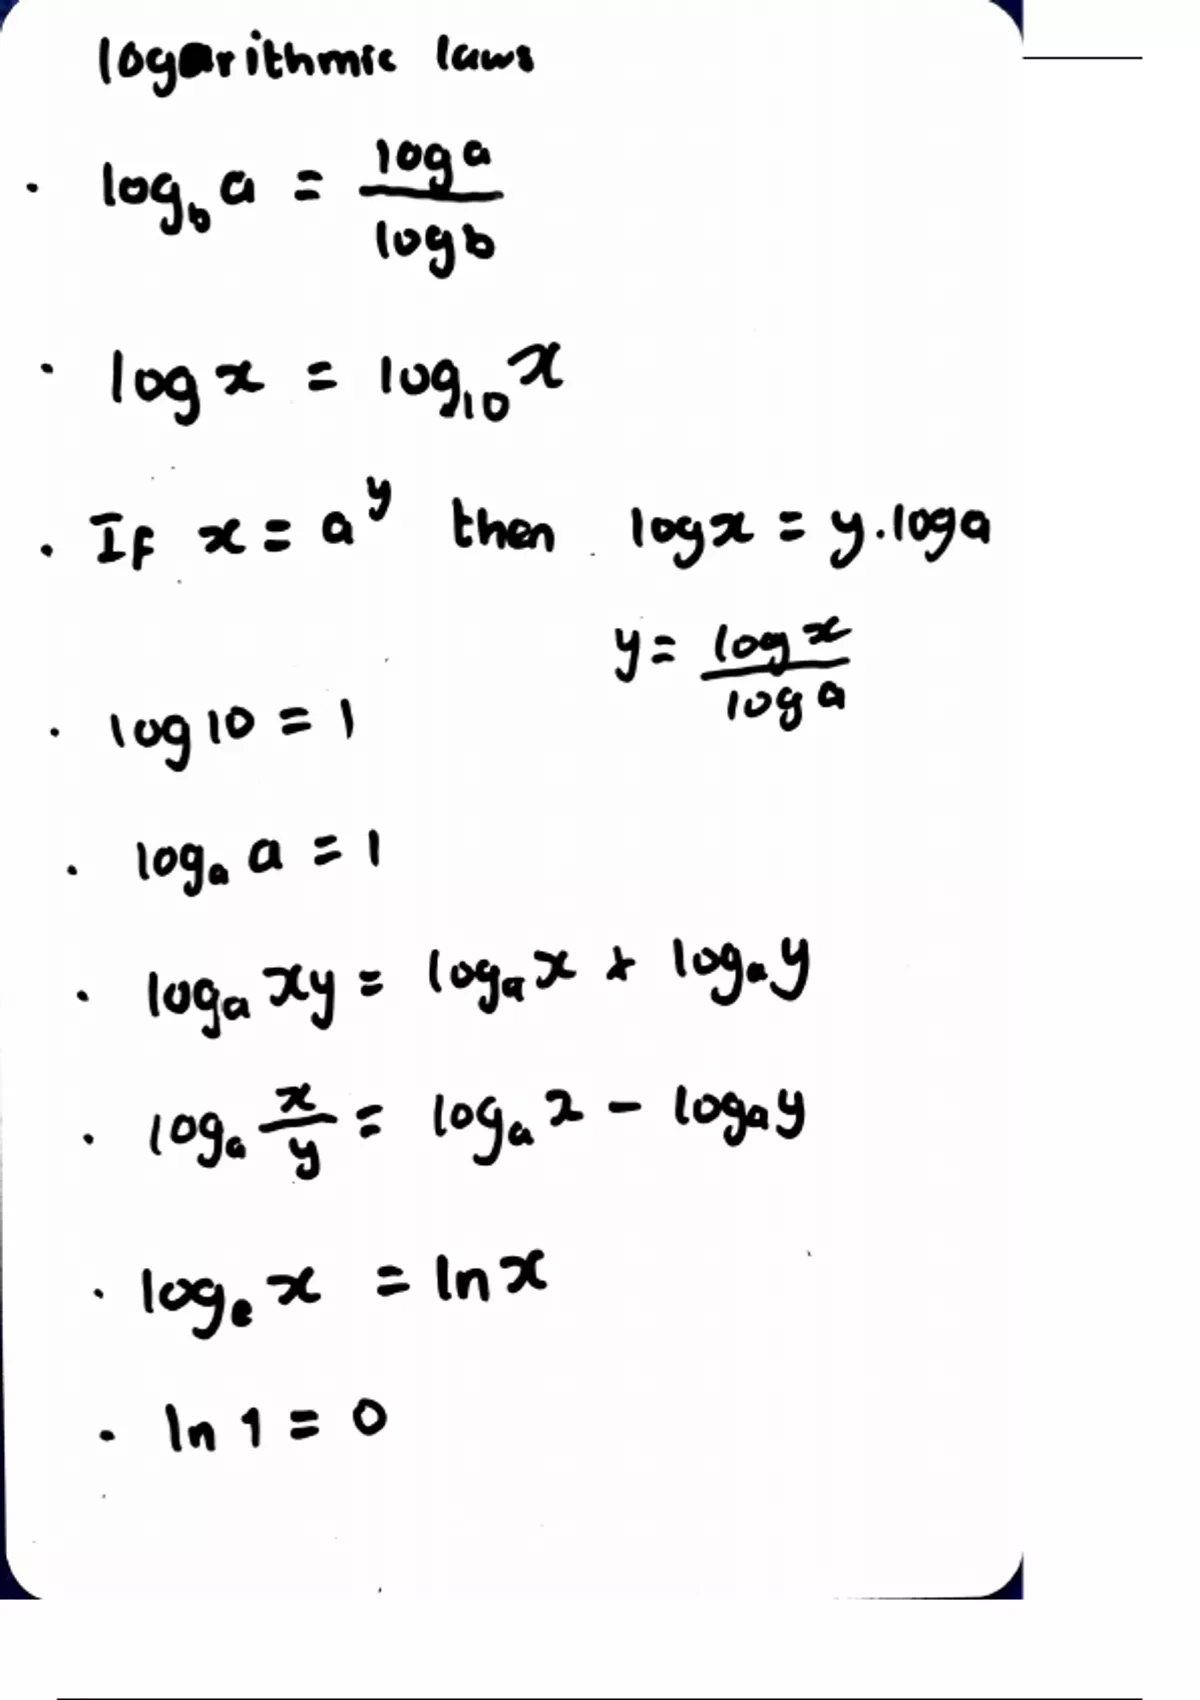 logarithmic laws
· log_b a = log a / log b
· log x = log_10 x
· If x = a^y then log x = y.log a
y = log x / log a
· log 10 = 1
· log_a a = 1
· log_a xy = log_a x + log_a y
· log_a x/y = log_a x - log_a y
· log_e x = ln x
· ln 1 = 0